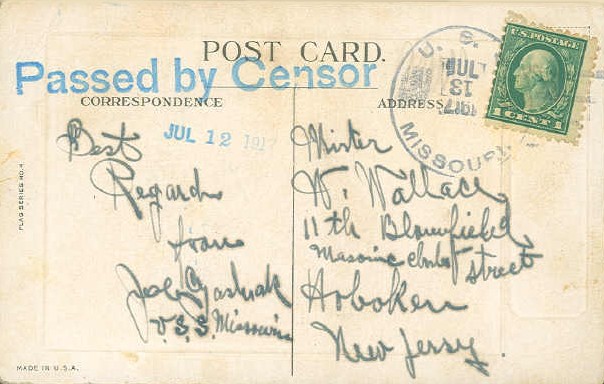 POST CARD.
Passed by Censor
CORRESPONDENCE
JUL 12 1917
Best
Regards
from
U.S.S. Missouri
ADDRESS
Mister
W. Wallace
11th Bloomfield
Masonic Club street
Hoboken
New Jersy
U. S. S.
JUL
13
1917
MISSOURI.
U.S. POSTAGE
1 CENT 1
FLAG SERIES NO.4
MADE IN U.S.A.